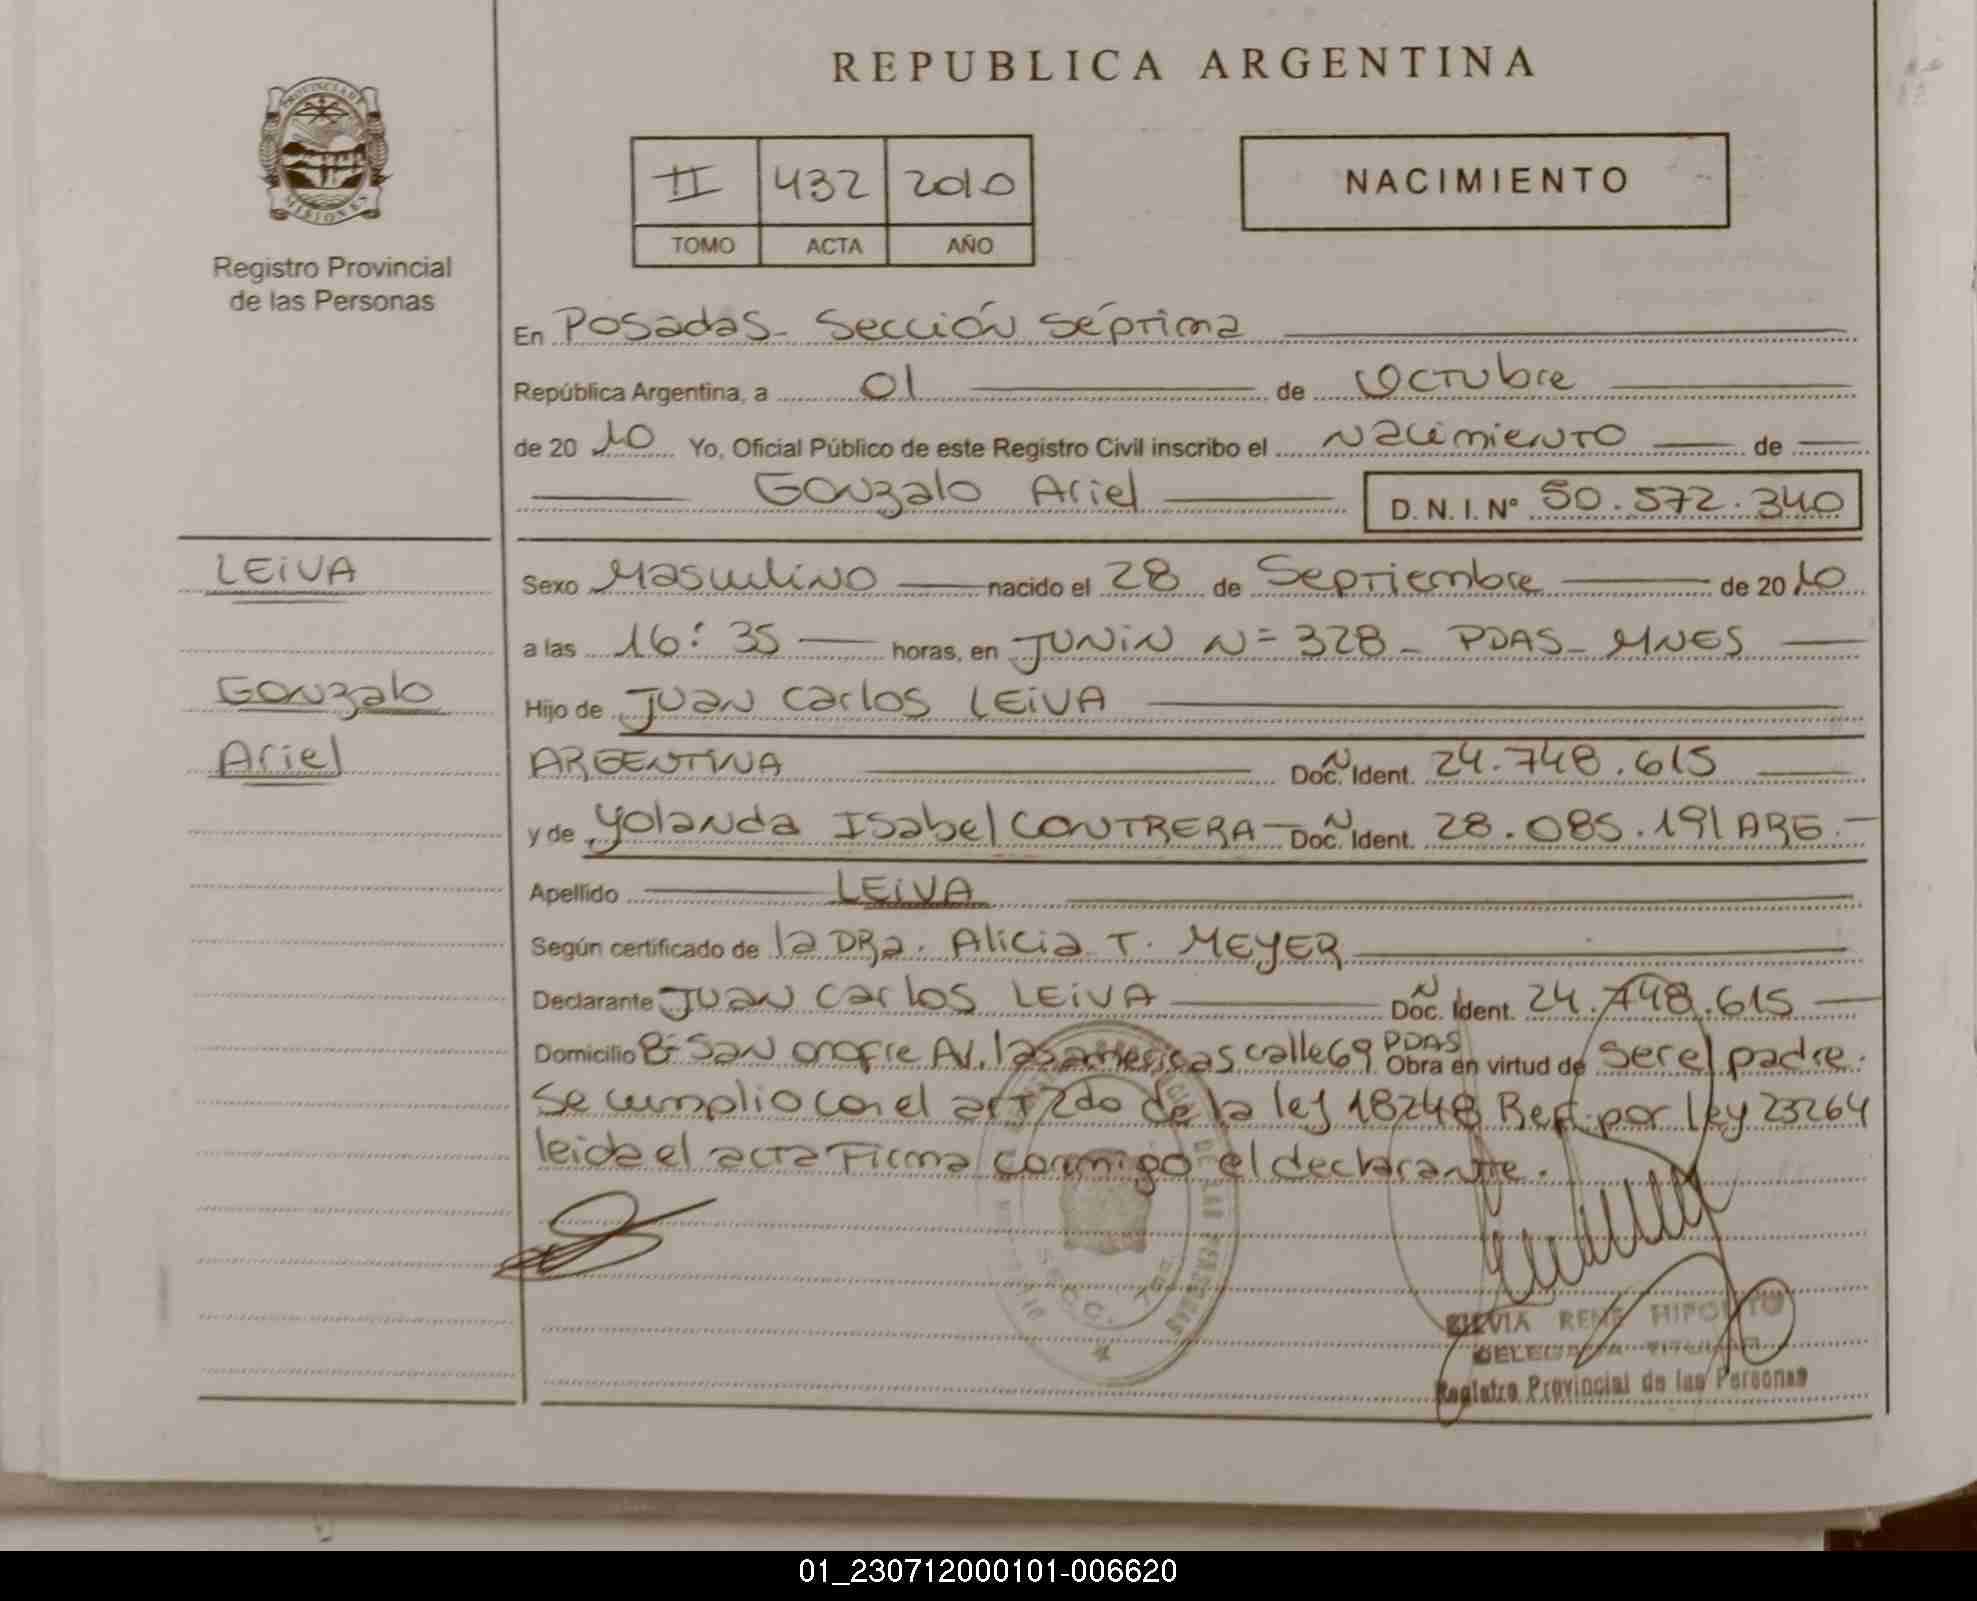 REPUBLICA ARGENTINA
PROVINCIA DE
MISIONES
Registro Provincial
de las Personas
II 432 2010
TOMO ACTA AÑO
NACIMIENTO
En Posadas - Sección séptima
República Argentina, a 01 de Octubre
de 2010 Yo, Oficial Público de este Registro Civil inscribo el Nacimiento de
Gonzalo Ariel D. N. I. Nº 50.572.340
LEIVA
Gonzalo
Ariel
Sexo Masculino nacido el 28 de Septiembre de 2010
a las 16:35 horas, en JUNIN N= 328 - PDAS - MNES
Hijo de Juan Carlos LEIVA
ARGENTINA N Doc. Ident. 24.748.615
y de Yolanda Isabel CONTRERA N Doc. Ident. 28.085.191 ARG.
Apellido LEIVA
Según certificado de la DRa. Alicia T. MEYER
Declarante Juan Carlos LEIVA N Doc. Ident. 24.748.615
Domicilio Bº San Onofre Av. las americas calle 69 PDAS Obra en virtud de ser el padre.
Se cumplio con el art 2do de la ley 18248 Ref. por Ley 23264
leida el acta Firma conmigo el declarante.
SILVIA RENE HIPOLITO
DELEGADA TITULAR
Registro Provincial de las Personas
01_230712000101-006620